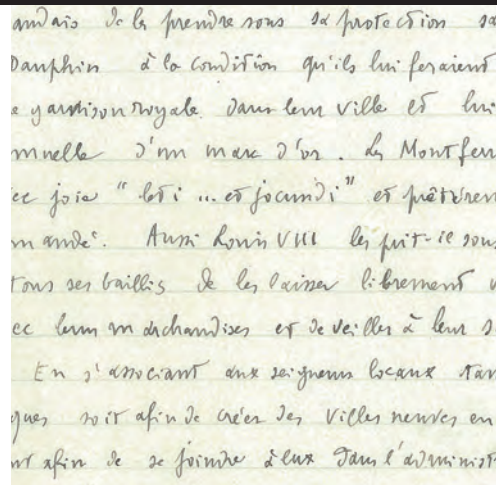 andais de les prendre sous sa protection sa
Dauphin à la condition qu'ils lui feraient
e garnison royale dans leur ville et lui
nnuelle d'un marc d'or. Les Montferr
ec joie "leti ... et jocundi" et prêtèren
mandé. Aussi Louis VIII les prit-il sous
tous ses baillis de les laisser librement
ec leurs marchandises et de veiller à leur
En s'associant aux seigneurs locaux
ques soit afin de créer des villes neuves en
nt afin de se joindre à eux dans l'administ